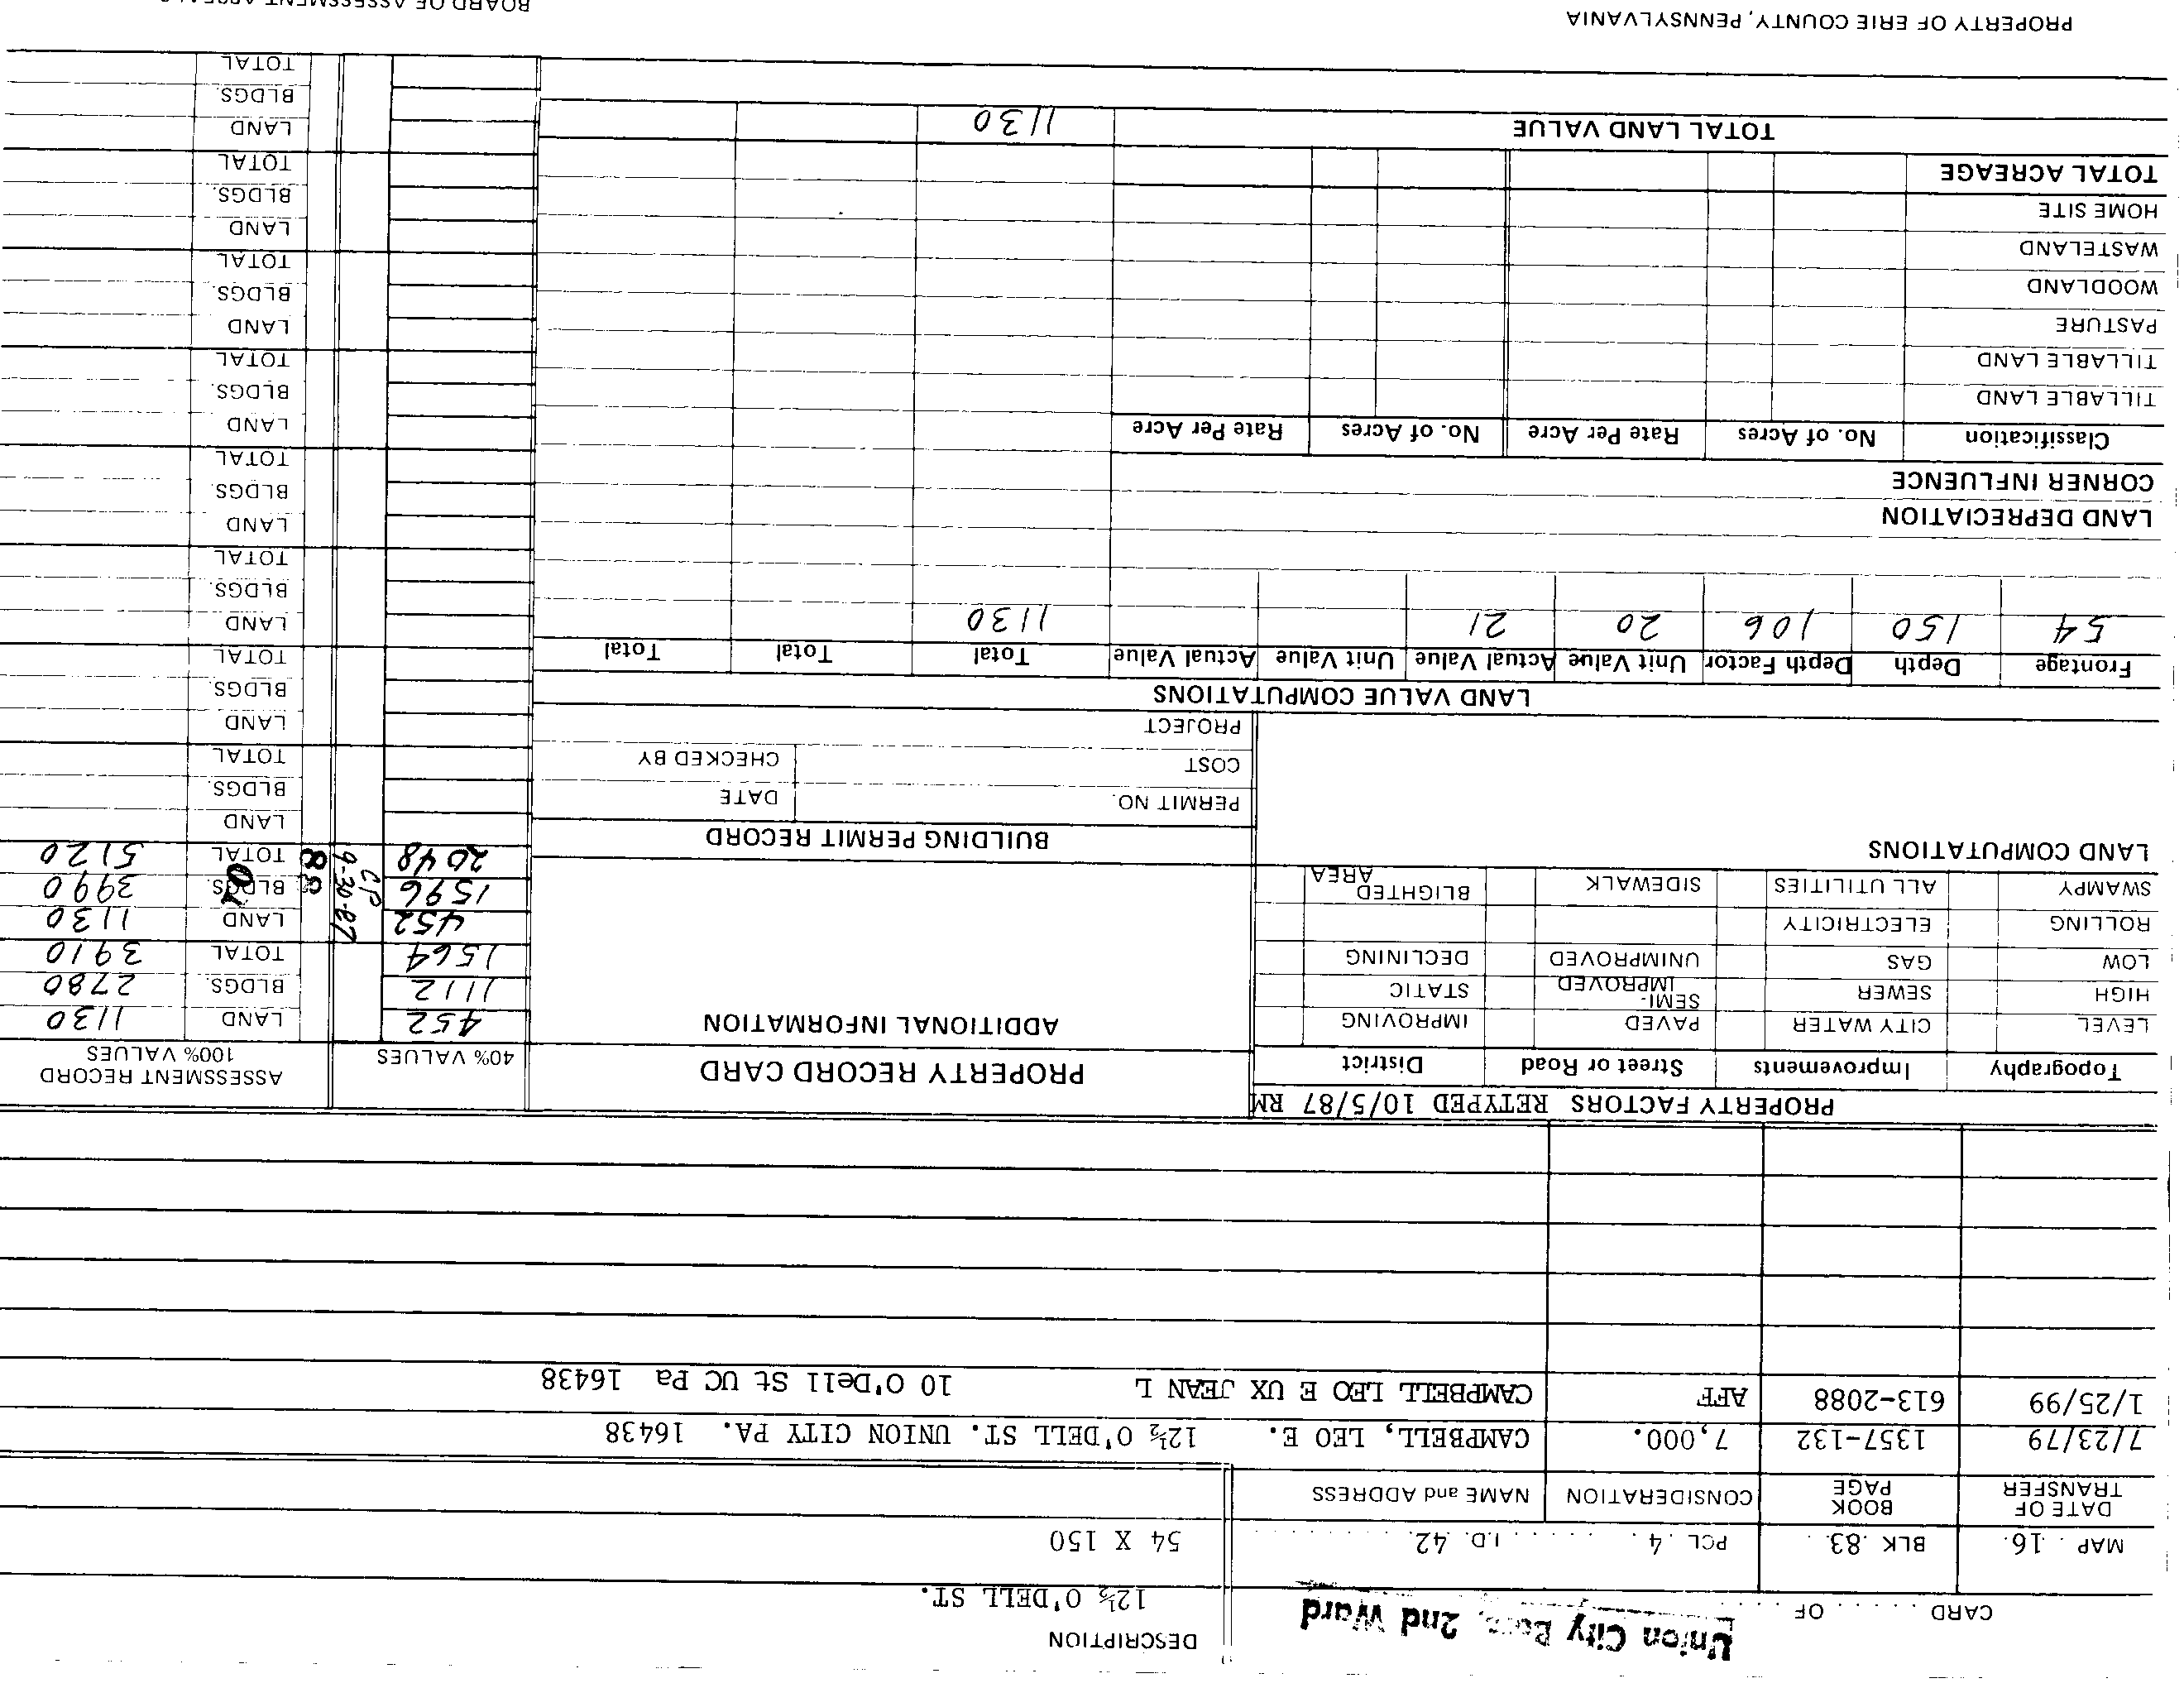 Union City Boro, 2nd Ward
CARD . . . . . OF . . . . .
DESCRIPTION
12½ O'DELL ST.
MAP . . 16. BLK . 83. . PCL . 4 . . . . . . I.D. 42. . . . . . . . . . .
54 X 150
DATE OF TRANSFER BOOK PAGE CONSIDERATION NAME and ADDRESS
7/23/79 1357-132 7,000. CAMPBELL, LEO E. 12½ O'DELL ST. UNION CITY PA. 16438
1/25/99 613-2088 AFF CAMPBELL LEO E UX JEAN L 10 O'Dell St UC Pa 16438
PROPERTY FACTORS RETYPED 10/5/87 RM
Topography Improvements Street or Road District
LEVEL CITY WATER PAVED IMPROVING
HIGH SEWER SEMI-IMPROVED STATIC
LOW GAS UNIMPROVED DECLINING
ROLLING ELECTRICITY
SWAMPY ALL UTILITIES SIDEWALK BLIGHTED AREA
LAND COMPUTATIONS
PROPERTY RECORD CARD
ADDITIONAL INFORMATION
BUILDING PERMIT RECORD
PERMIT NO. DATE
COST CHECKED BY
PROJECT
40% VALUES ASSESSMENT RECORD
100% VALUES
452 LAND 1130
1112 BLDGS. 2780
1564 TOTAL 3910
452 LAND 1130
1596 BLDGS. 3990
2048 TOTAL 5120
CP
9-30-87
88
LAND
BLDGS.
TOTAL
LAND
BLDGS.
TOTAL
LAND
BLDGS.
TOTAL
LAND
BLDGS.
TOTAL
LAND
BLDGS.
TOTAL
LAND
BLDGS.
TOTAL
LAND
BLDGS.
TOTAL
LAND
BLDGS.
TOTAL
LAND VALUE COMPUTATIONS
Frontage Depth Depth Factor Unit Value Actual Value Unit Value Actual Value Total Total Total
54 150 106 20 21 1130
LAND DEPRECIATION
CORNER INFLUENCE
Classification No. of Acres Rate Per Acre No. of Acres Rate Per Acre
TILLABLE LAND
TILLABLE LAND
PASTURE
WOODLAND
WASTELAND
HOME SITE
TOTAL ACREAGE
TOTAL LAND VALUE 1130
PROPERTY OF ERIE COUNTY, PENNSYLVANIA
BOARD OF ASSESSMENT